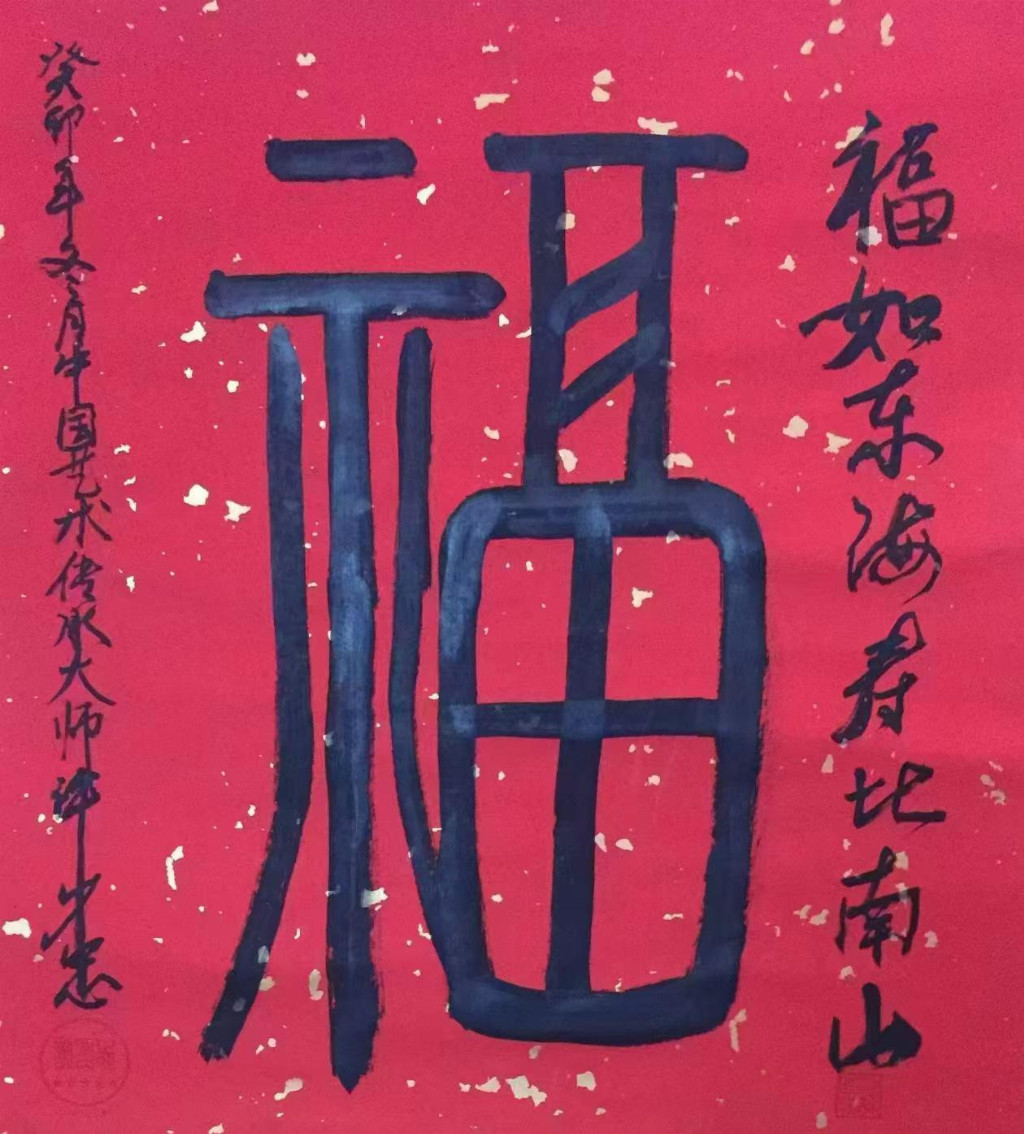 福如东海寿比南山
福
癸卯年冬月中国艺术传承大师许忠